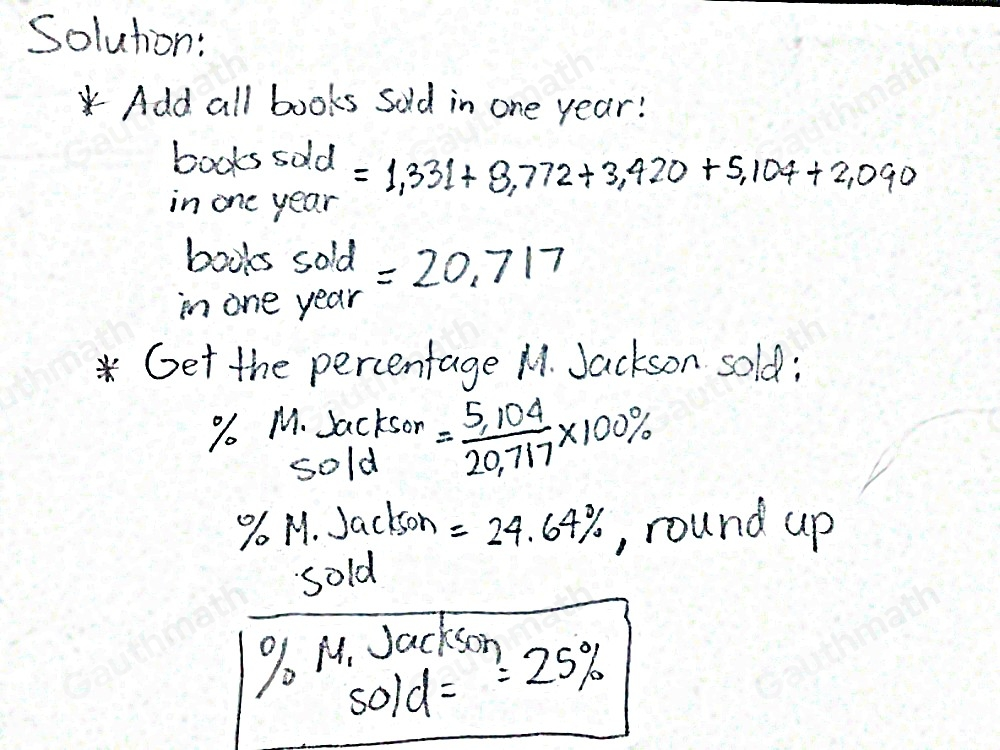 Solution:
* Add all books sold in one year:
books sold in one year = 1,331 + 8,772 + 3,420 + 5,104 + 2,090
books sold in one year = 20,717
* Get the percentage M. Jackson sold:
% M. Jackson sold = 5,104 / 20,717 x 100%
% M. Jackson sold = 24.64%, round up
% M. Jackson sold = = 25%
Gauthmath